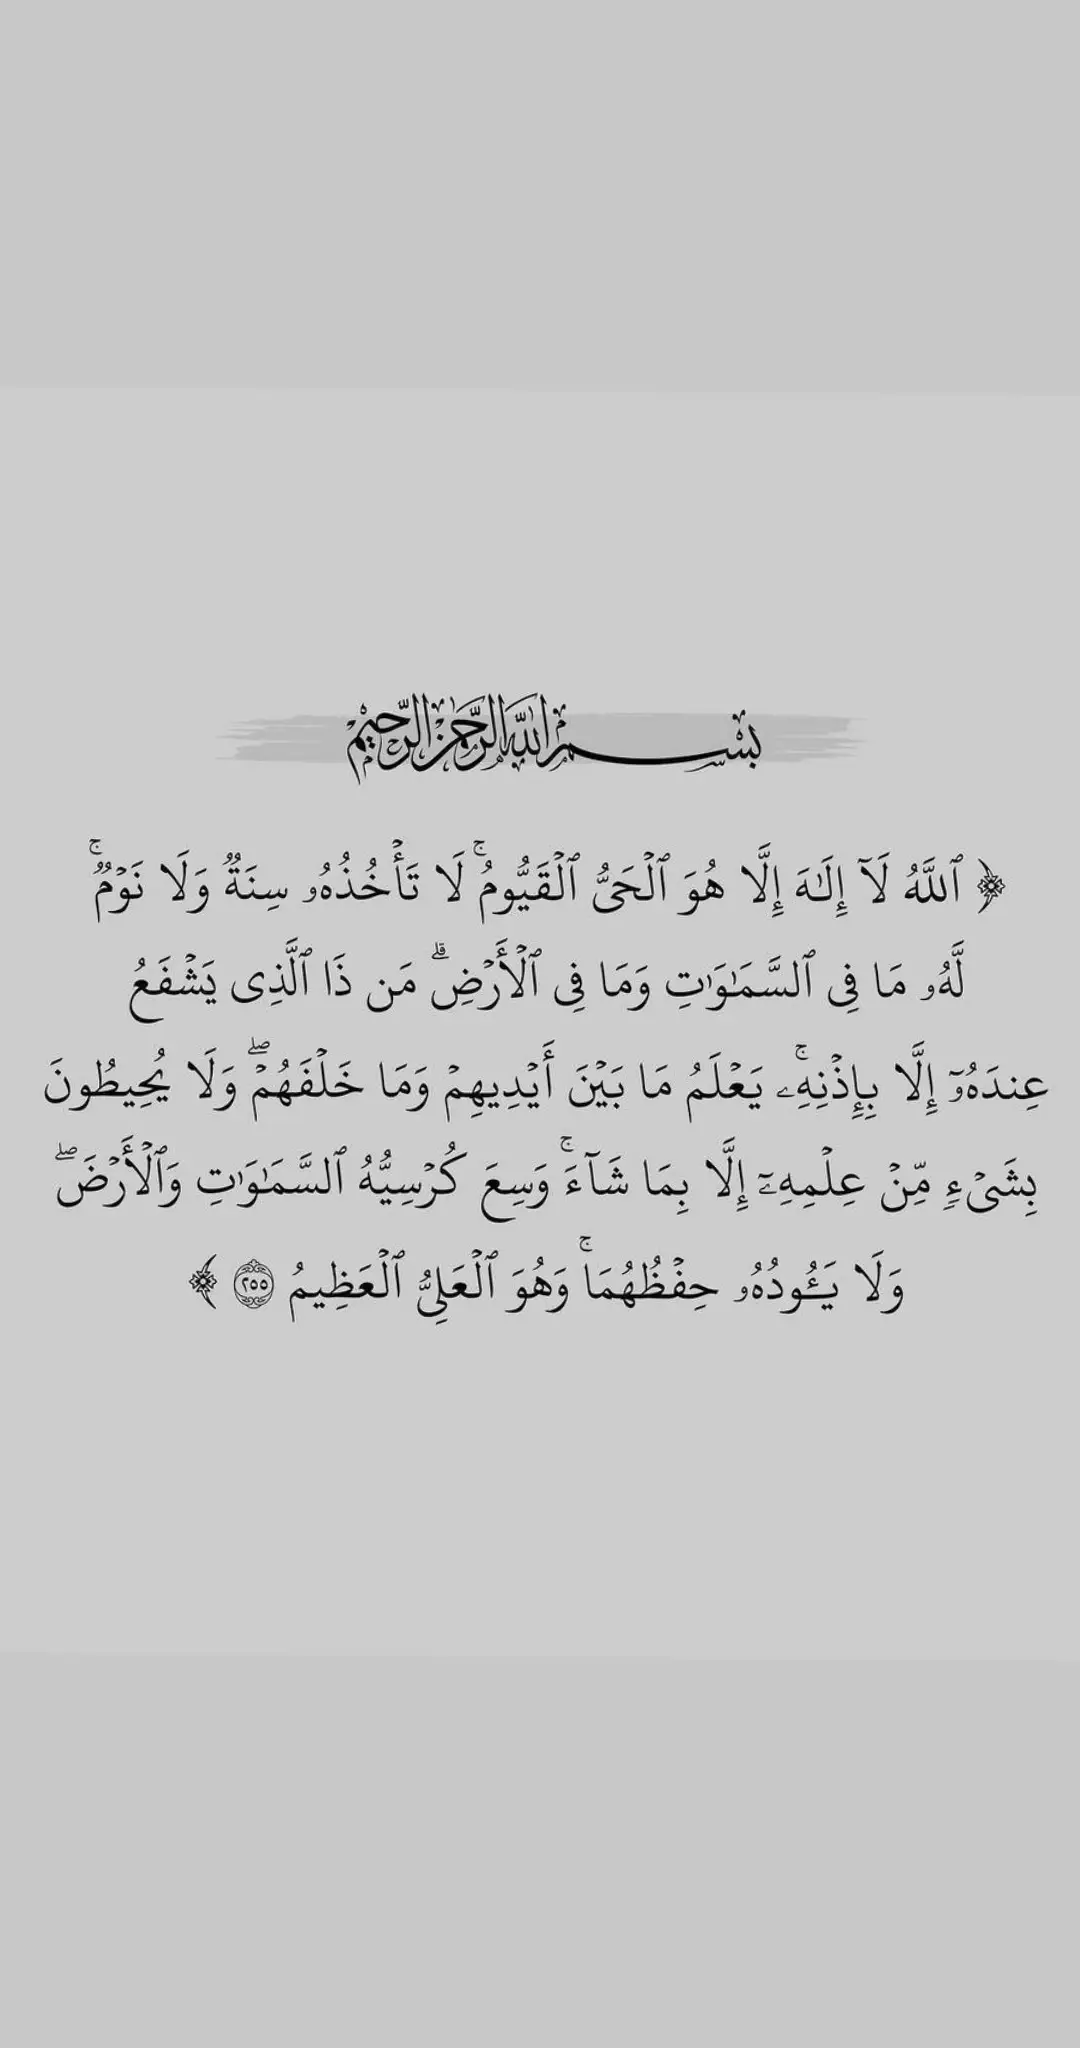 بِسْمِ اللَّهِ الرَّحْمَٰنِ الرَّحِيمِ
﴿ ٱللَّهُ لَآ إِلَٰهَ إِلَّا هُوَ ٱلْحَىُّ ٱلْقَيُّومُ ۚ لَا تَأْخُذُهُۥ سِنَةٌ وَلَا نَوْمٌ ۚ
لَّهُۥ مَا فِى ٱلسَّمَٰوَٰتِ وَمَا فِى ٱلْأَرْضِ ۗ مَن ذَا ٱلَّذِى يَشْفَعُ
عِندَهُۥٓ إِلَّا بِإِذْنِهِۦ ۚ يَعْلَمُ مَا بَيْنَ أَيْدِيهِمْ وَمَا خَلْفَهُمْ ۖ وَلَا يُحِيطُونَ
بِشَىْءٍ مِّنْ عِلْمِهِۦٓ إِلَّا بِمَا شَآءَ ۚ وَسِعَ كُرْسِيُّهُ ٱلسَّمَٰوَٰتِ وَٱلْأَرْضَ ۖ
وَلَا يَـُٔودُهُۥ حِفْظُهُمَا ۚ وَهُوَ ٱلْعَلِىُّ ٱلْعَظِيمُ ٢٥٥ ﴾